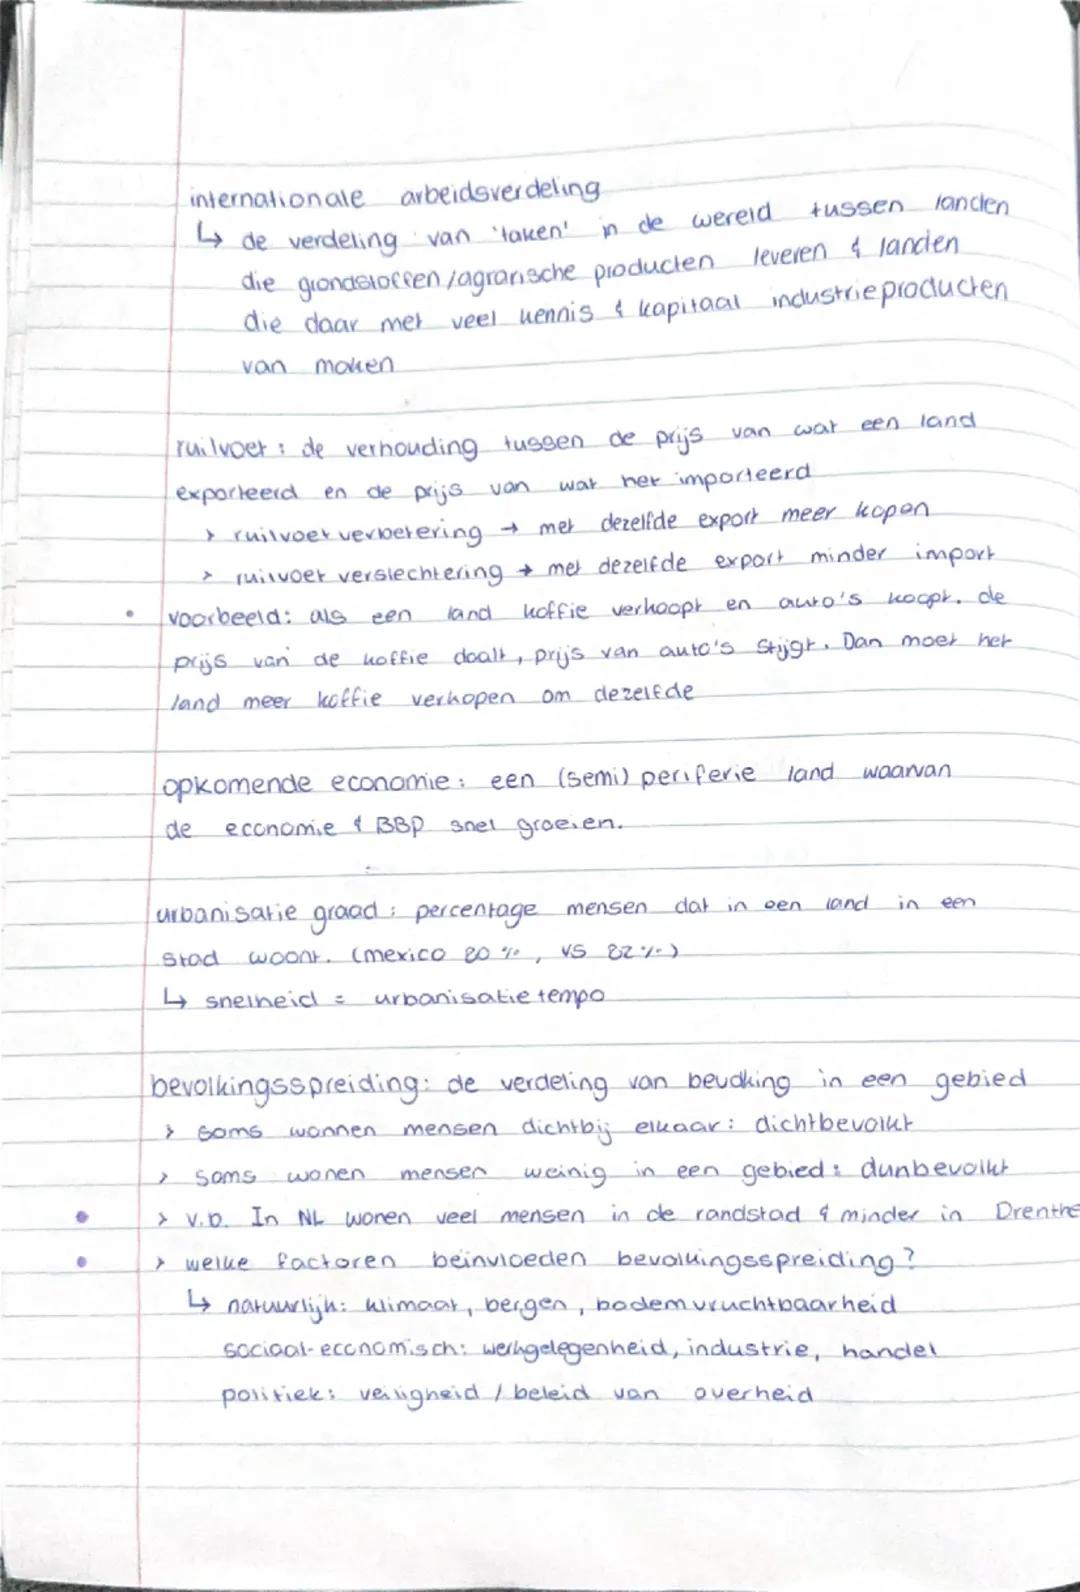 internationale arbeidsverdeling
↳ de verdeling van 'taken' in de wereld tussen landen
die grondstoffen/agrarische producten leveren & landen
die daar met veel kennis & kapitaal industrieproducten
van maken
ruilvoet: de verhouding tussen de prijs van wat een land
exporteerd en de prijs van wat het importeerd
> ruilvoet verbetering → met dezelfde export meer kopen
> ruilvoet verslechtering → met dezelfde export minder import
• voorbeeld: als een land koffie verkoopt en auto's koopt. de
prijs van de koffie daalt, prijs van auto's stijgt. Dan moet het
land meer koffie verkopen om dezelfde
opkomende economie: een (semi) periferie land waarvan
de economie & BBP snel groeien.
urbanisatie graad: percentage mensen dat in een land in een
stad woont. (mexico 80%, VS 82%)
↳ snelheid = urbanisatie tempo
bevolkingsspreiding: de verdeling van bevolking in een gebied
> soms wonnen mensen dichtbij elkaar: dichtbevolkt
> soms wonen mensen weinig in een gebied: dunbevolkt
• > v.b. In NL wonen veel mensen in de randstad & minder in Drenthe
• > welke factoren beïnvloeden bevolkingsspreiding?
↳ natuurlijk: klimaat, bergen, bodemvruchtbaarheid
sociaal-economisch: werkgelegenheid, industrie, handel
politiek: veiligheid / beleid van overheid